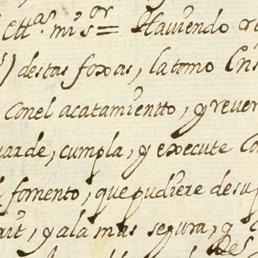 mi s.or = Haviendo re
) destas foxas, latomo Ens
conel acatamientto, y rever
uarde, cumpla, y execute Co
fomento, que pudiere desu
y ala mas segura, y